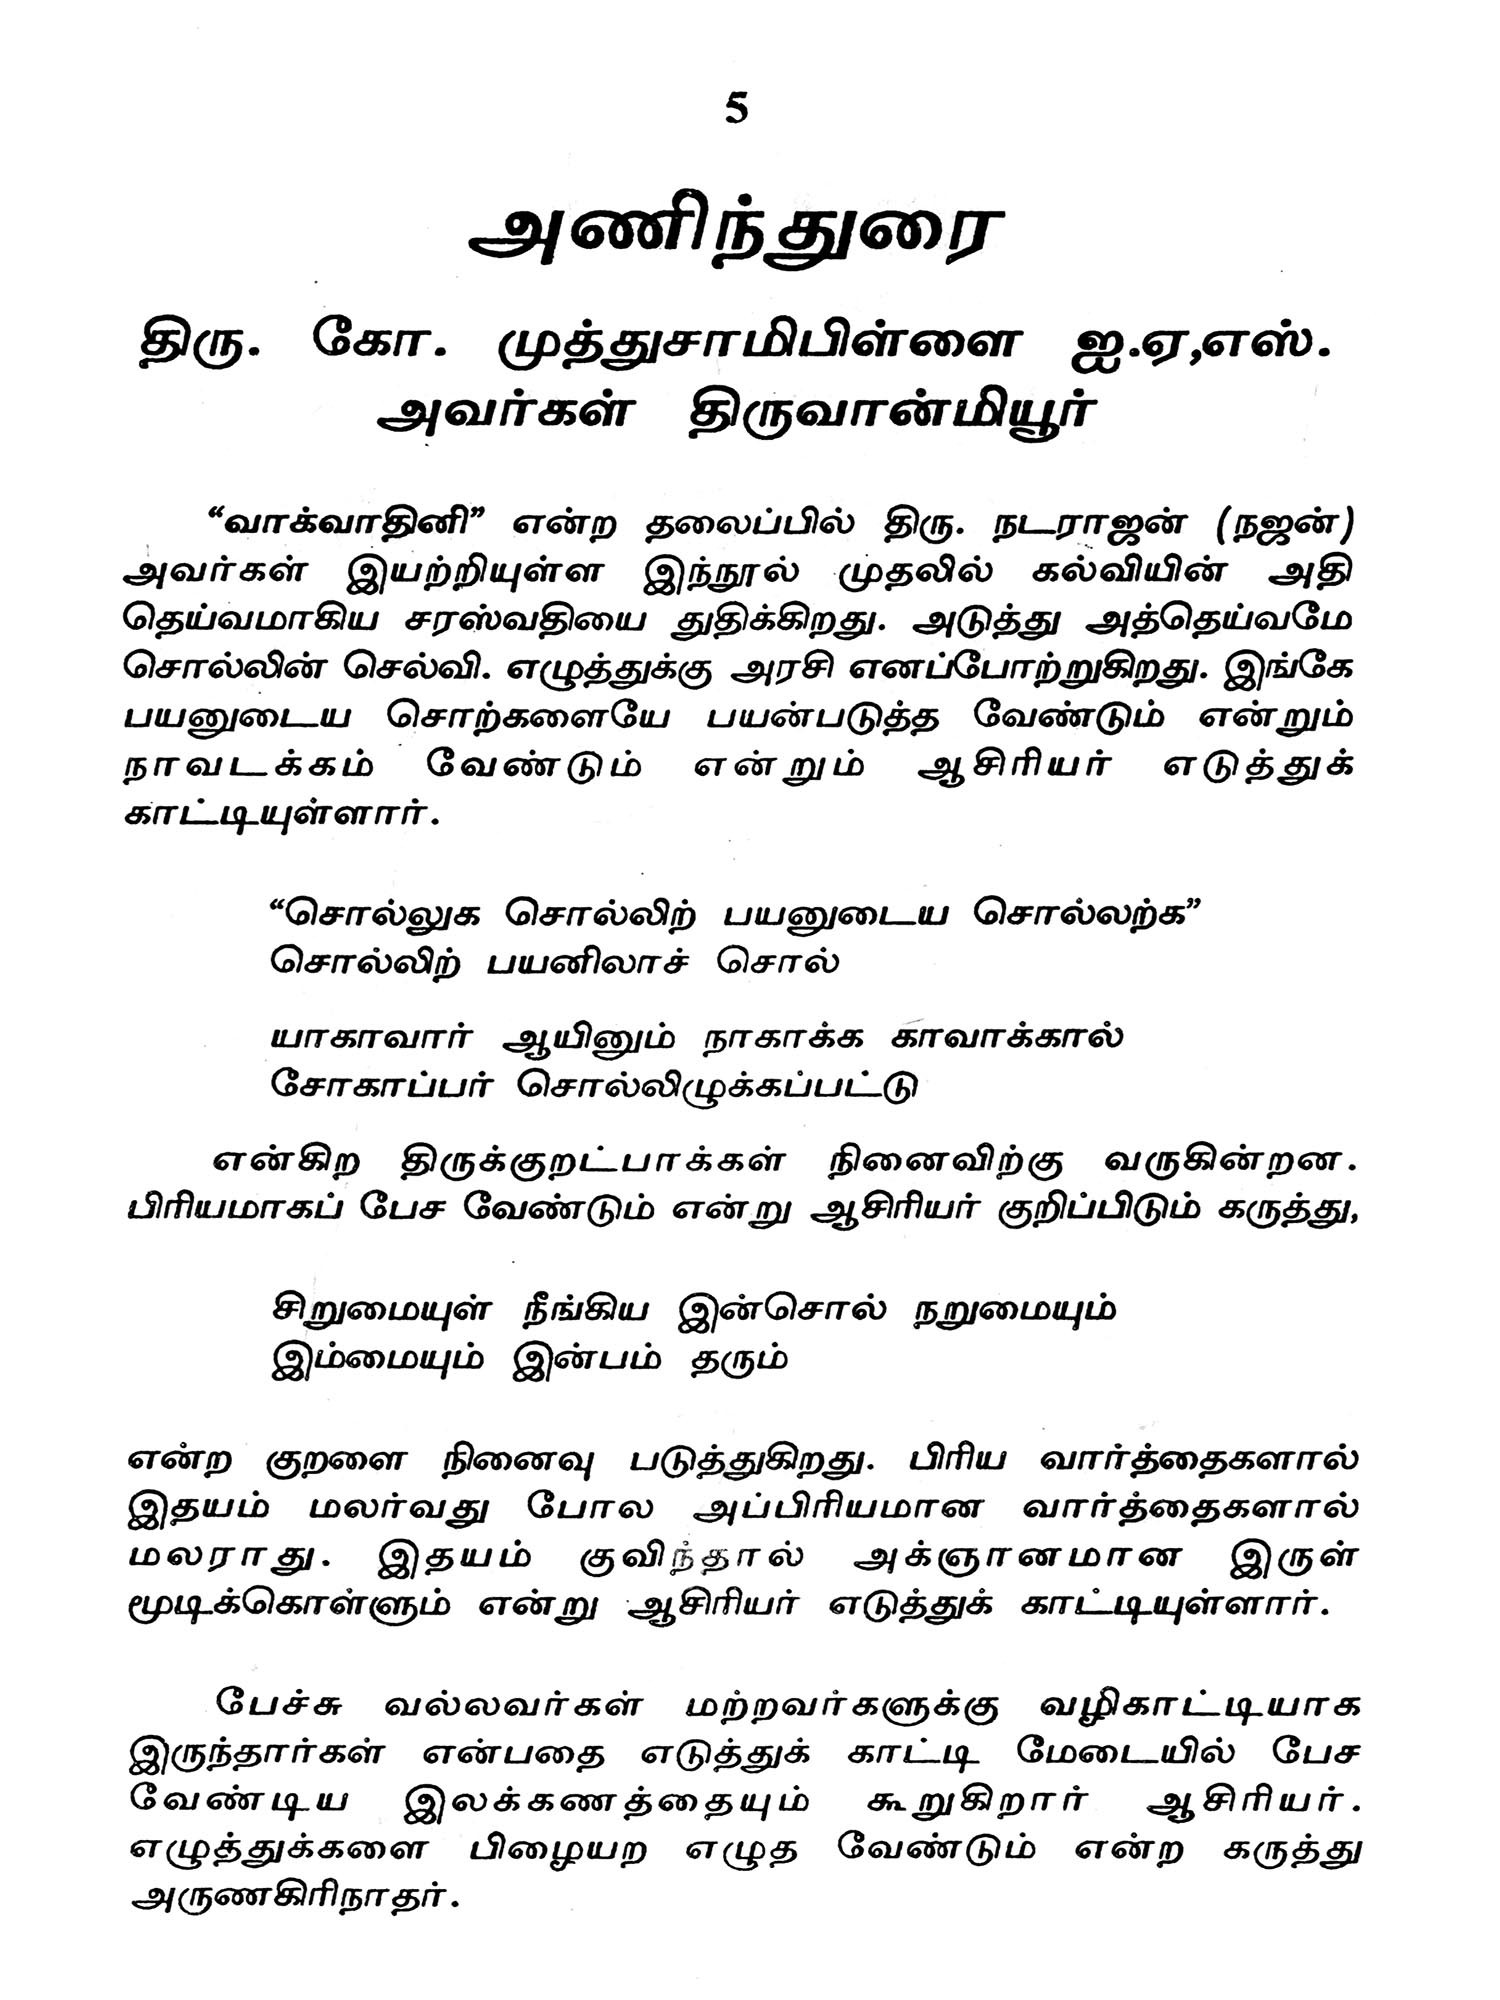 5
அணிந்துரை
திரு. கோ. முத்துசாமிபிள்ளை ஐ.ஏ,எஸ்.
அவர்கள் திருவான்மியூர்
“வாக்வாதினி” என்ற தலைப்பில் திரு. நடராஜன் (நஜன்)
அவர்கள் இயற்றியுள்ள இந்நூல் முதலில் கல்வியின் அதி
தெய்வமாகிய சரஸ்வதியை துதிக்கிறது. அடுத்து அத்தெய்வமே
சொல்லின் செல்வி. எழுத்துக்கு அரசி எனப்போற்றுகிறது. இங்கே
பயனுடைய சொற்களையே பயன்படுத்த வேண்டும் என்றும்
நாவடக்கம் வேண்டும் என்றும் ஆசிரியர் எடுத்துக்
காட்டியுள்ளார்.
“சொல்லுக சொல்லிற் பயனுடைய சொல்லற்க”
சொல்லிற் பயனிலாச் சொல்
யாகாவார் ஆயினும் நாகாக்க காவாக்கால்
சோகாப்பர் சொல்லிழுக்கப்பட்டு
என்கிற திருக்குறட்பாக்கள் நினைவிற்கு வருகின்றன.
பிரியமாகப் பேச வேண்டும் என்று ஆசிரியர் குறிப்பிடும் கருத்து,
சிறுமையுள் நீங்கிய இன்சொல் நறுமையும்
இம்மையும் இன்பம் தரும்
என்ற குறளை நினைவு படுத்துகிறது. பிரிய வார்த்தைகளால்
இதயம் மலர்வது போல அப்பிரியமான வார்த்தைகளால்
மலராது. இதயம் குவிந்தால் அக்ஞானமான இருள்
மூடிக்கொள்ளும் என்று ஆசிரியர் எடுத்துக் காட்டியுள்ளார்.
பேச்சு வல்லவர்கள் மற்றவர்களுக்கு வழிகாட்டியாக
இருந்தார்கள் என்பதை எடுத்துக் காட்டி மேடையில் பேச
வேண்டிய இலக்கணத்தையும் கூறுகிறார் ஆசிரியர்.
எழுத்துக்களை பிழையற எழுத வேண்டும் என்ற கருத்து
அருணகிரிநாதர்.